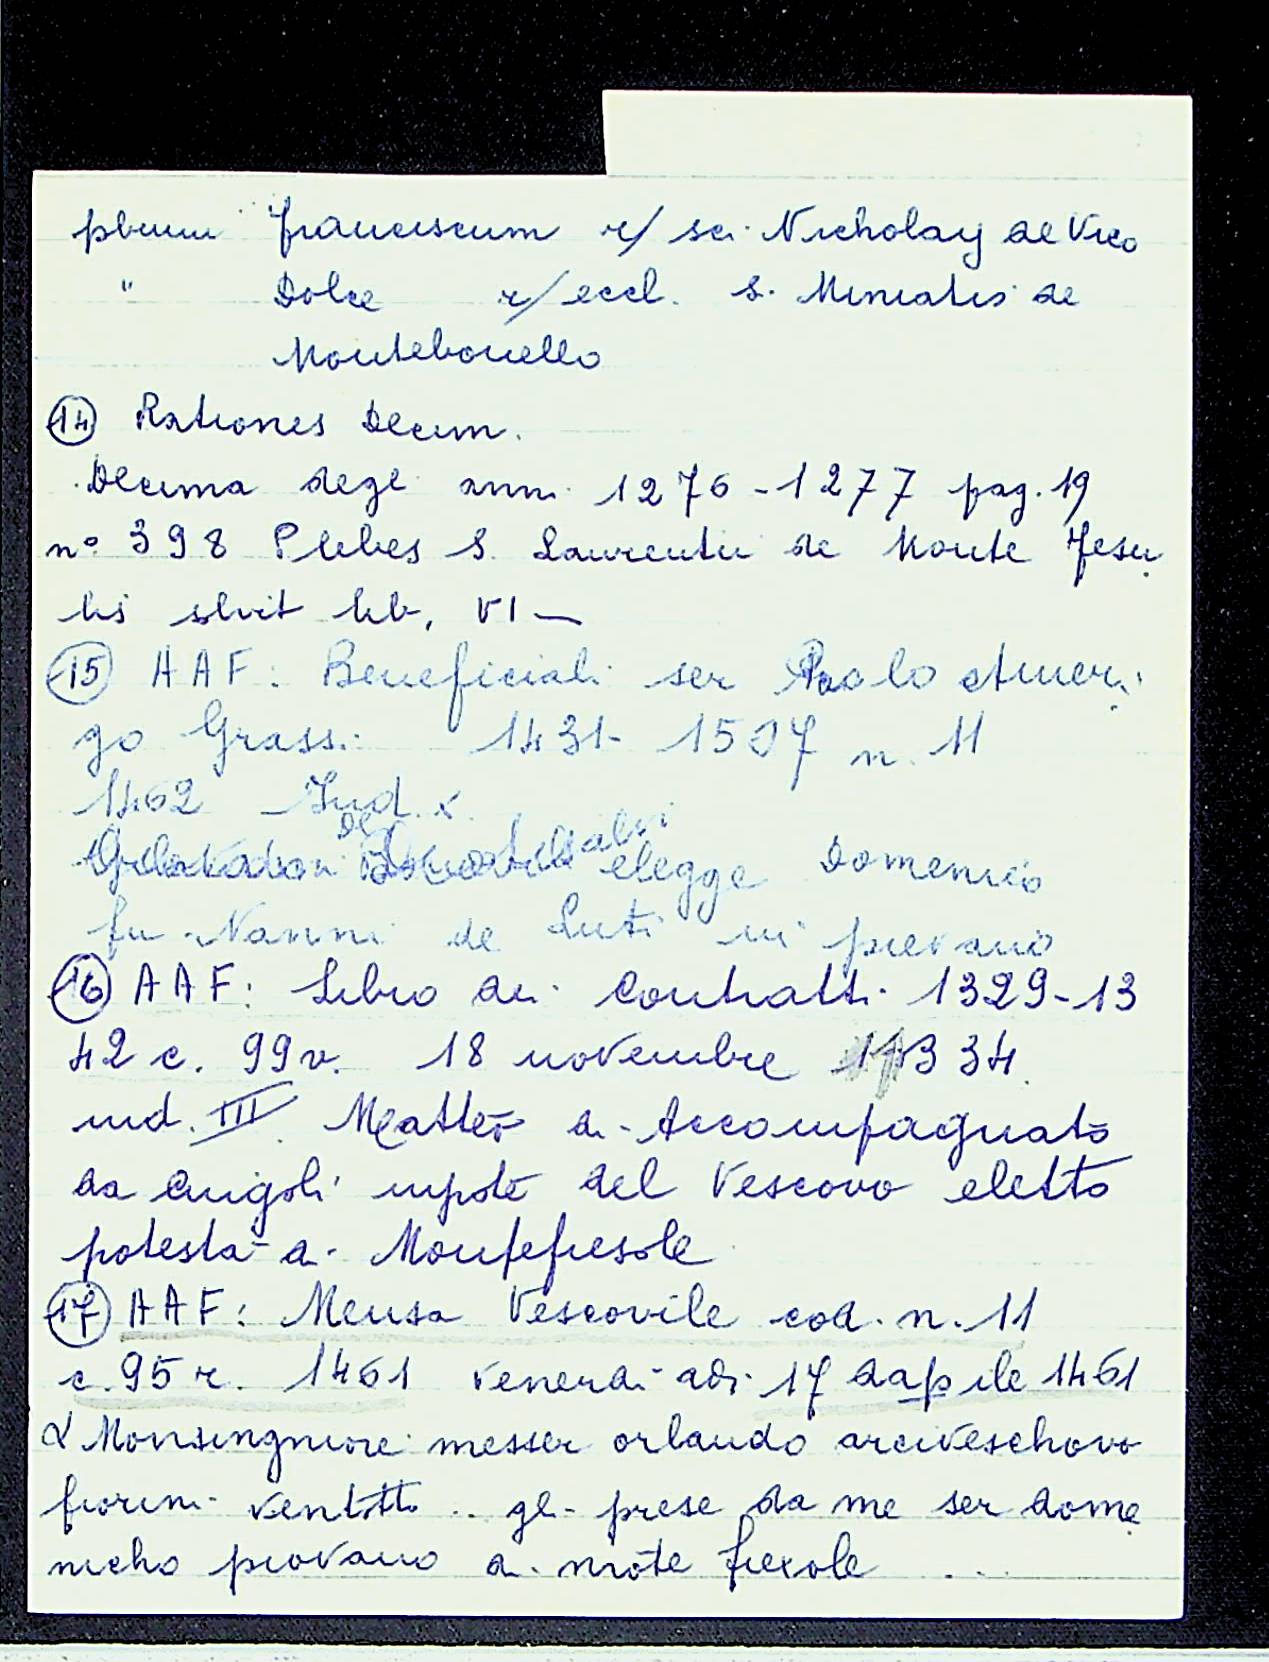 pbrum franciscum r/ sci Nicholay de Vico
" Dolce r/ eccl. S. Miniatis de
Montebonello
(14) Rationes Decim.
Decima degl anni 1276-1277 pag. 19
n° 398 Plebes S. Laurentii de Monte Fesu
lis solvit lib. VI —
(15) AAF: Beneficiali ser Paolo Ameri
go Grassi 1431-1507 n. 11
1462 Ind. x.
elegge Domenico
fu Nanni de Luti in pievano
(16) AAF: Libro dei Contratti 1329-13
42 c. 99v. 18 novembre 1334
ind. III Matteo di Accompagnato
da Cingoli nipote del Vescovo eletto
potestà di Montefiesole
(17) AAF: Mensa Vescovile cod. n. 11
c. 95 r. 1461 venerdi adi 17 daprile 1461
Monsingniore messer orlando arciveschovo
fiorini ventotto .. gli prese da me ser dome
nicho piovano di mōte fiexole ...